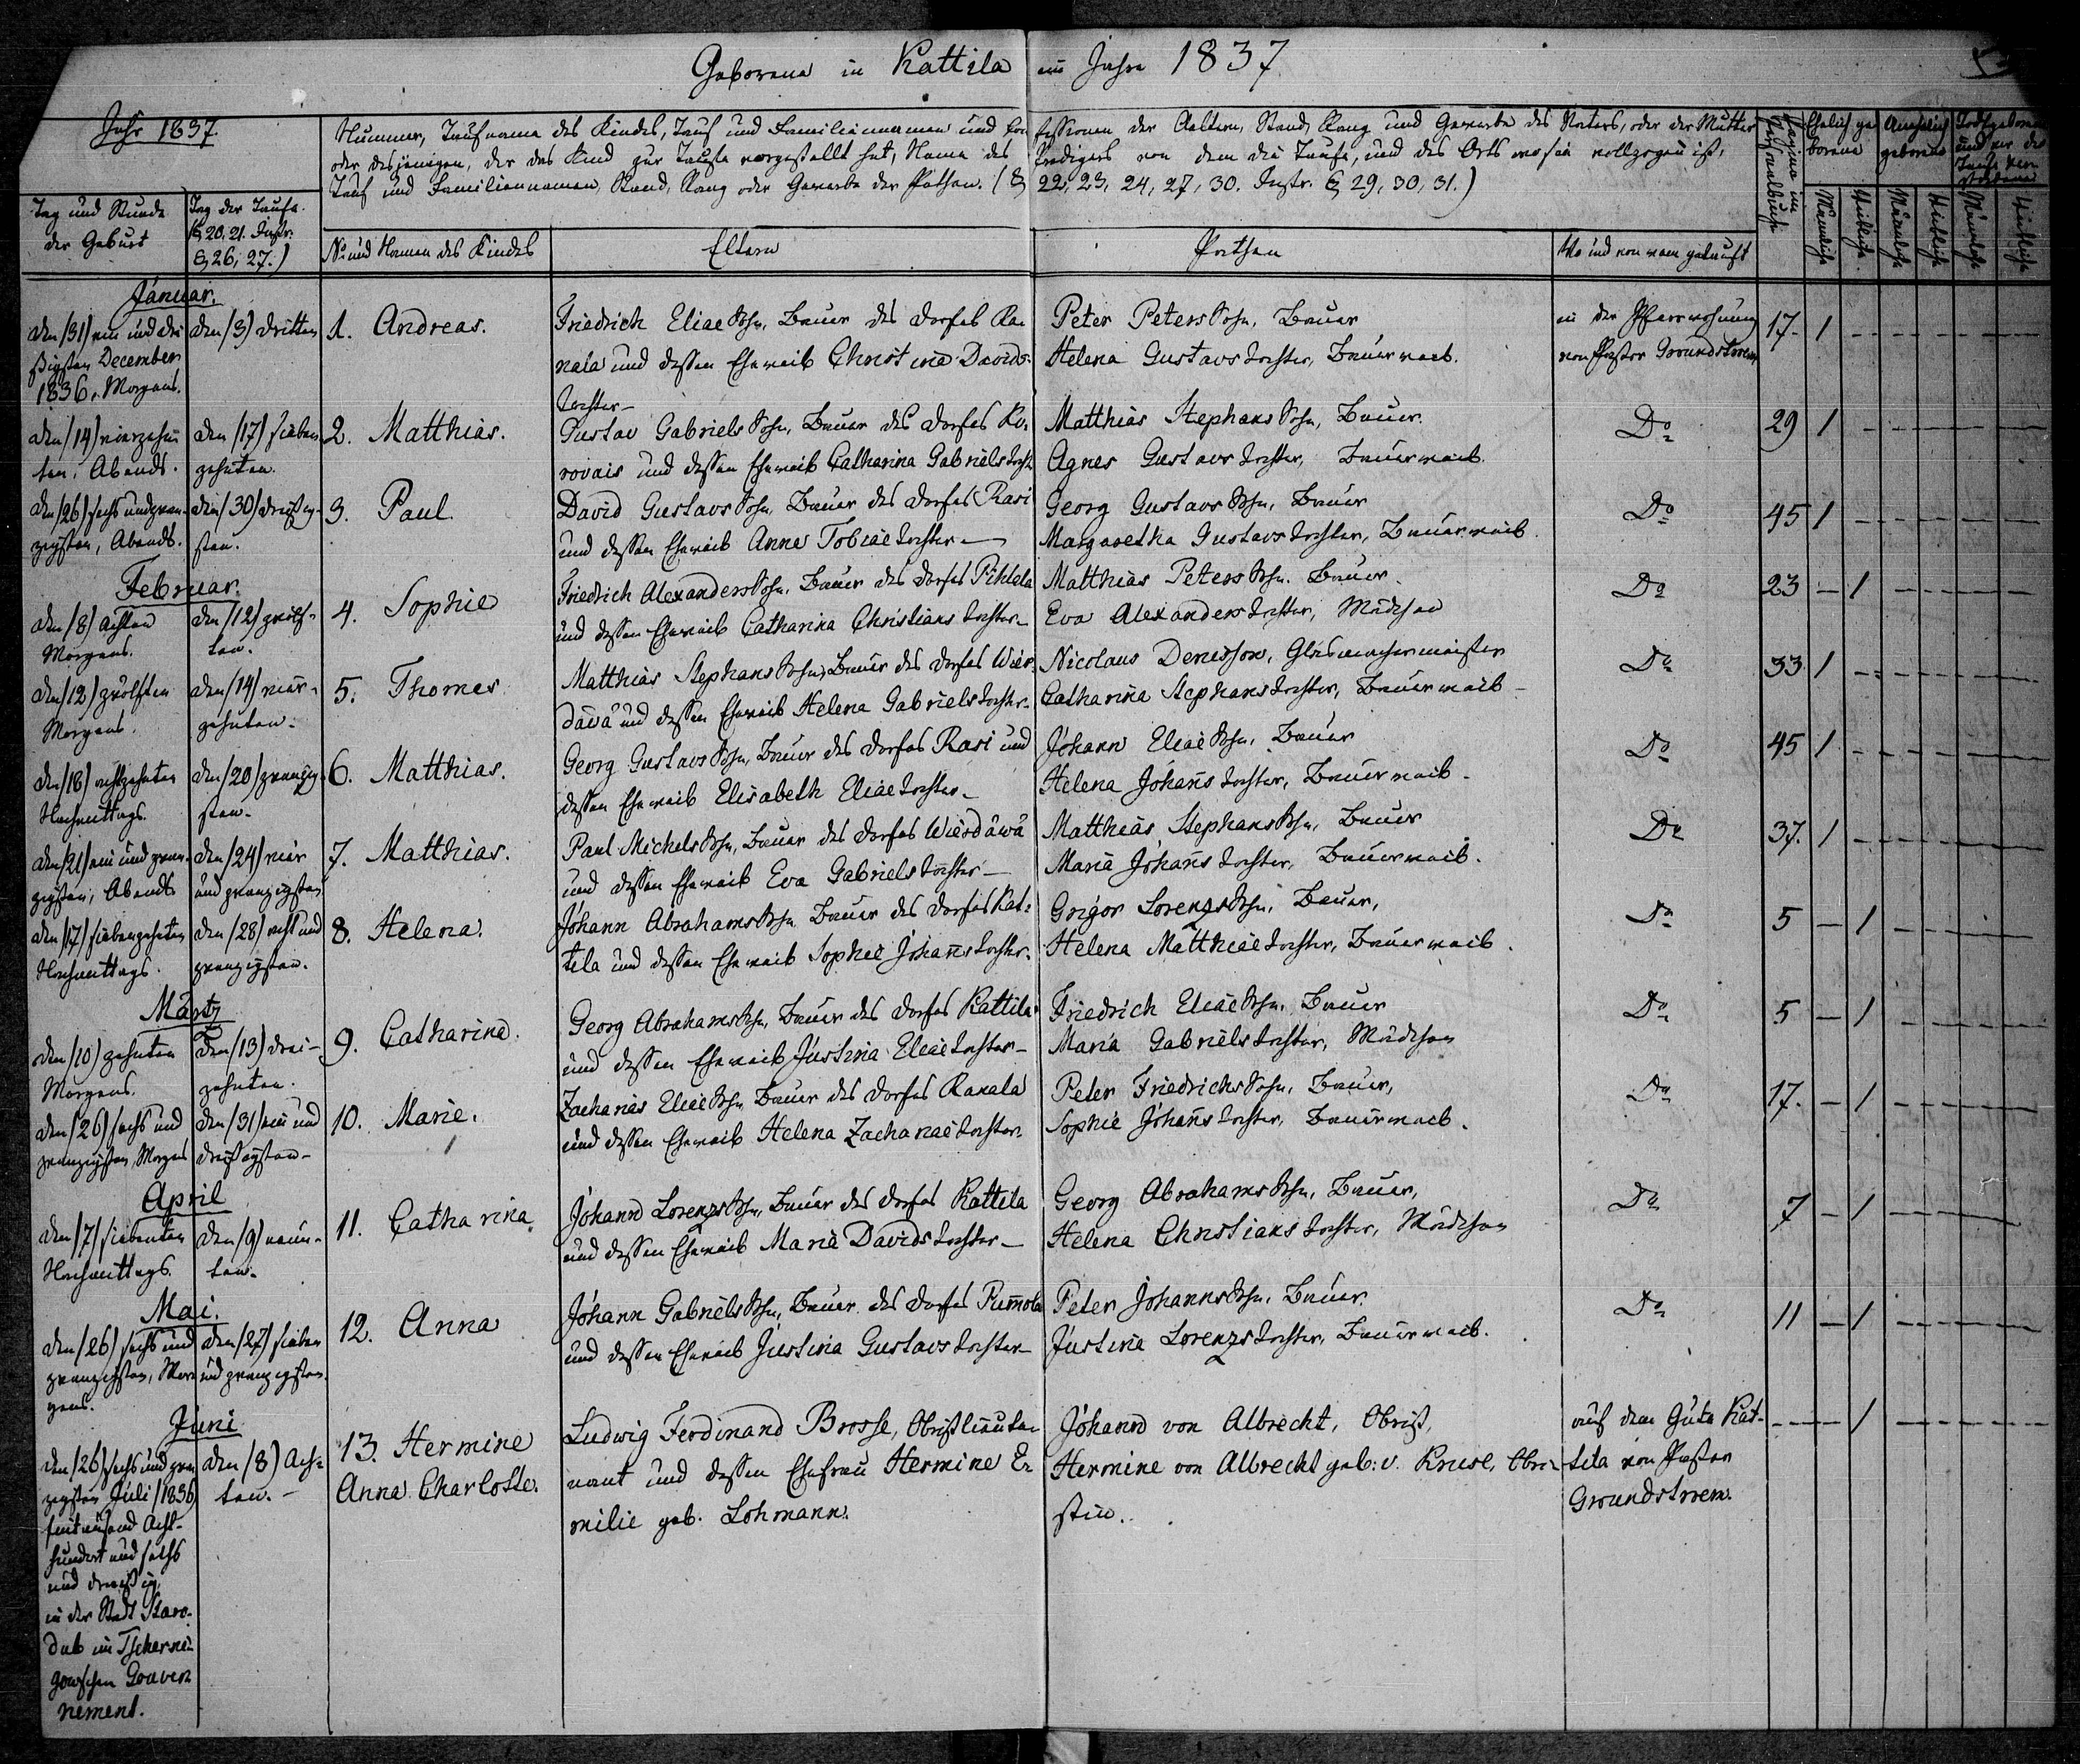 Geborene in Kattila im Jahre 1837
Jahr 1837.
Nummer, Taufname des Kindes, Tauf und Familiennamen und Confessionen der Aeltern, Stand, Rang und Gewerbe des Vaters, oder der Mutter
oder desjenigen, der das Kind zur Taufe vorgestellt hat, Name des Predigers von dem die Taufe, und des Orts wo sie vollzogen ist,
Tauf und Familiennamen, Stand, Rang oder Gewerbe der Pathen. (§ 22, 23, 24, 27, 30. Instr. § 29, 30, 31.)
Pagina im Personalbuche
Ehelich geborene
Unehelich geborene
Todtgeborene und vor der Taufe verstorbene
Tag und Stunde
der Geburt
Tag der Taufe.
(§ 20, 21. Instr.
§ 26, 27.)
No und Namen des Kindes
Eltern
Pathen
Wo und von wem getauft
Männliche
Weibliche.
Männliche
Weibliche
Männliche
Weibliche
Januar.
den (31) ein und drei
ßigsten December
1836, Morgens.
den (3) dritten
1. Andreas.
Friedrich Eliae Sohn, Bauer des Dorfes Ka
nala und dessen Eheweib Christina Davids-
tochter-
Peter Peters Sohn, Bauer
Helena Gustavs tochter, Bauerweib.
in der Pfarrwohnung
von Pastor Groundstroem
17. 1 - - - - -
den (14) vierzehn
ten, Abends.
den (17) sieben
zehnten.
2. Matthias.
Gustav Gabriels Sohn, Bauer des Dorfes Ko-
rovais und dessen Eheweib Catharina Gabriels tocht
Matthias Stephans Sohn, Bauer.
Agnes Gustavs tochter, Bauerweib.
Do
29 1 - - - - -
den (26) sechs und zwan-
zigsten, Abends.
den (30) dreißig-
sten.
3. Paul.
David Gustavs Sohn, Bauer des Dorfes Rasi
und dessen Eheweib Anna Tobiae tochter-
Georg Gustavs Sohn, Bauer
Margaretha Gustavs tochter, Bauerweib.
Do
45 1 - - - - -
Februar.
den (8) achten
Morgens.
den (12) zwölf-
ten.
4. Sophie
Friedrich Alexanders Sohn, Bauer des Dorfes Pihlela
und dessen Eheweib Catharina Christians tochter-
Matthias Peters Sohn, Bauer.
Eva Alexanders tochter, Mädchen
Do
23 - 1 - - - -
den (12) zwölften
Morgens.
den (14) vier-
zehnten.
5. Thomas.
Matthias Stephans Sohn, Bauer des Dorfes Wier-
däwä und dessen Eheweib Helena Gabriels tochter-
Nicolaus Denisson, Glasmachermeister
Catharina Stephans tochter, Bauerweib-
Do
33. 1 - - - - -
den (18) achtzehnten
Nachmittags.
den (20) zwanzig-
sten.
6. Matthias.
Georg Gustavs Sohn, Bauer des Dorfes Rasi und
dessen Eheweib Elisabeth Eliae tochter-
Johann Eliae Sohn, Bauer
Helena Johanns tochter, Bauerweib-
Do
45 1 - - - - -
den (21) ein und zwan-
zigsten, Abends
den (24) vier
und zwanzigsten
7. Matthias.
Paul Michels Sohn, Bauer des Dorfes Wierdäwä
und dessen Eheweib Eva Gabriels tochter-
Matthias Stephans Sohn, Bauer
Maria Johanns tochter, Bauerweib.
Do
37. 1 - - - - -
den (17) siebenzehnten
Nachmittags.
den (28) acht und
zwanzigsten.
8. Helena.
Johann Abrahams Sohn Bauer des Dorfes Kat-
tila und dessen Eheweib Sophie Johanns tochter.
Grigor Lorenzs Sohn, Bauer,
Helena Matthiae tochter, Bauerweib.
Do
5 - 1 - - - -
Märtz
den (10) zehnten
Morgens.
den (13) drei-
zehnten.
9. Catharina.
Georg Abrahams Sohn, Bauer des Dorfes Kattila
und dessen Eheweib Justina Eliae tochter-
Friedrich Eliae Sohn, Bauer
Maria Gabriels tochter, Mädchen
Do
5 - 1 - - - -
den (26) sechs und
zwanzigsten, Morgens
den (31) ein und
dreißigsten-
10. Marie.
Zacharias Eliae Sohn, Bauer des Dorfes Kanala
und dessen Eheweib Helena Zachariae tochter.
Peter Friedrichs Sohn, Bauer,
Sophie Johanns tochter, Bauerweib.
Do
17. - 1 - - - -
April
den (7) siebenten
Nachmittags.
den (9) neun-
ten.
11. Catharina.
Johann Lorenzs Sohn, Bauer des Dorfes Kattila
und dessen Eheweib Maria Davids tochter-
Georg Abrahams Sohn, Bauer,
Helena Christians tochter, Mädchen
Do
7 - 1 - - - -
Mai.
den (26) sechs und
zwanzigsten, Mor
gens.
den (27) sieben
und zwanzigsten.
12. Anna
Johann Gabriels Sohn, Bauer des Dorfes Rum̅ola
und dessen Eheweib Justina Gustavs tochter-
Peter Johanns Sohn, Bauer.
Justina Lorenzs tochter, Bauerweib.
Do
11 - 1 - - - -
Juni
den (26) sechs und zwan
zigsten Juli (1836)
eintausend Acht-
hundert und sechs
und dreißig,
in der Stadt Staro-
dub im Tscherni-
gowschen Gouver
nement.
den (8) Ach-
ten.-
13. Hermine
Anna Charlotte.
Ludwig Ferdinand Brosse, Obristlieute-
nant und dessen Ehefrau Hermine E-
milie geb. Lohmann.
Johann von Albrecht, Obrist,
Hermine von Albrecht geb: v. Kruse, Obri-
stin.
auf dem Gute Kat-
tila von Pastor
Groundstroem.
- - 1 - - - -